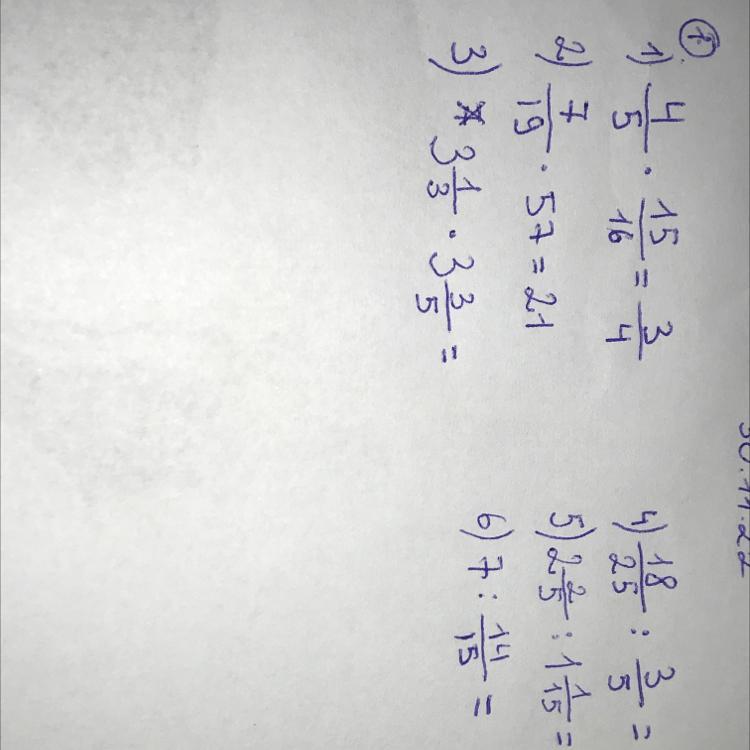 30.11.22
1.
1) 4/5 · 15/16 = 3/4
2) 7/19 · 57 = 21
3) 3 1/3 · 3 3/5 =
4) 18/25 : 3/5 =
5) 2 2/5 : 1 1/15 =
6) 7 : 14/15 =